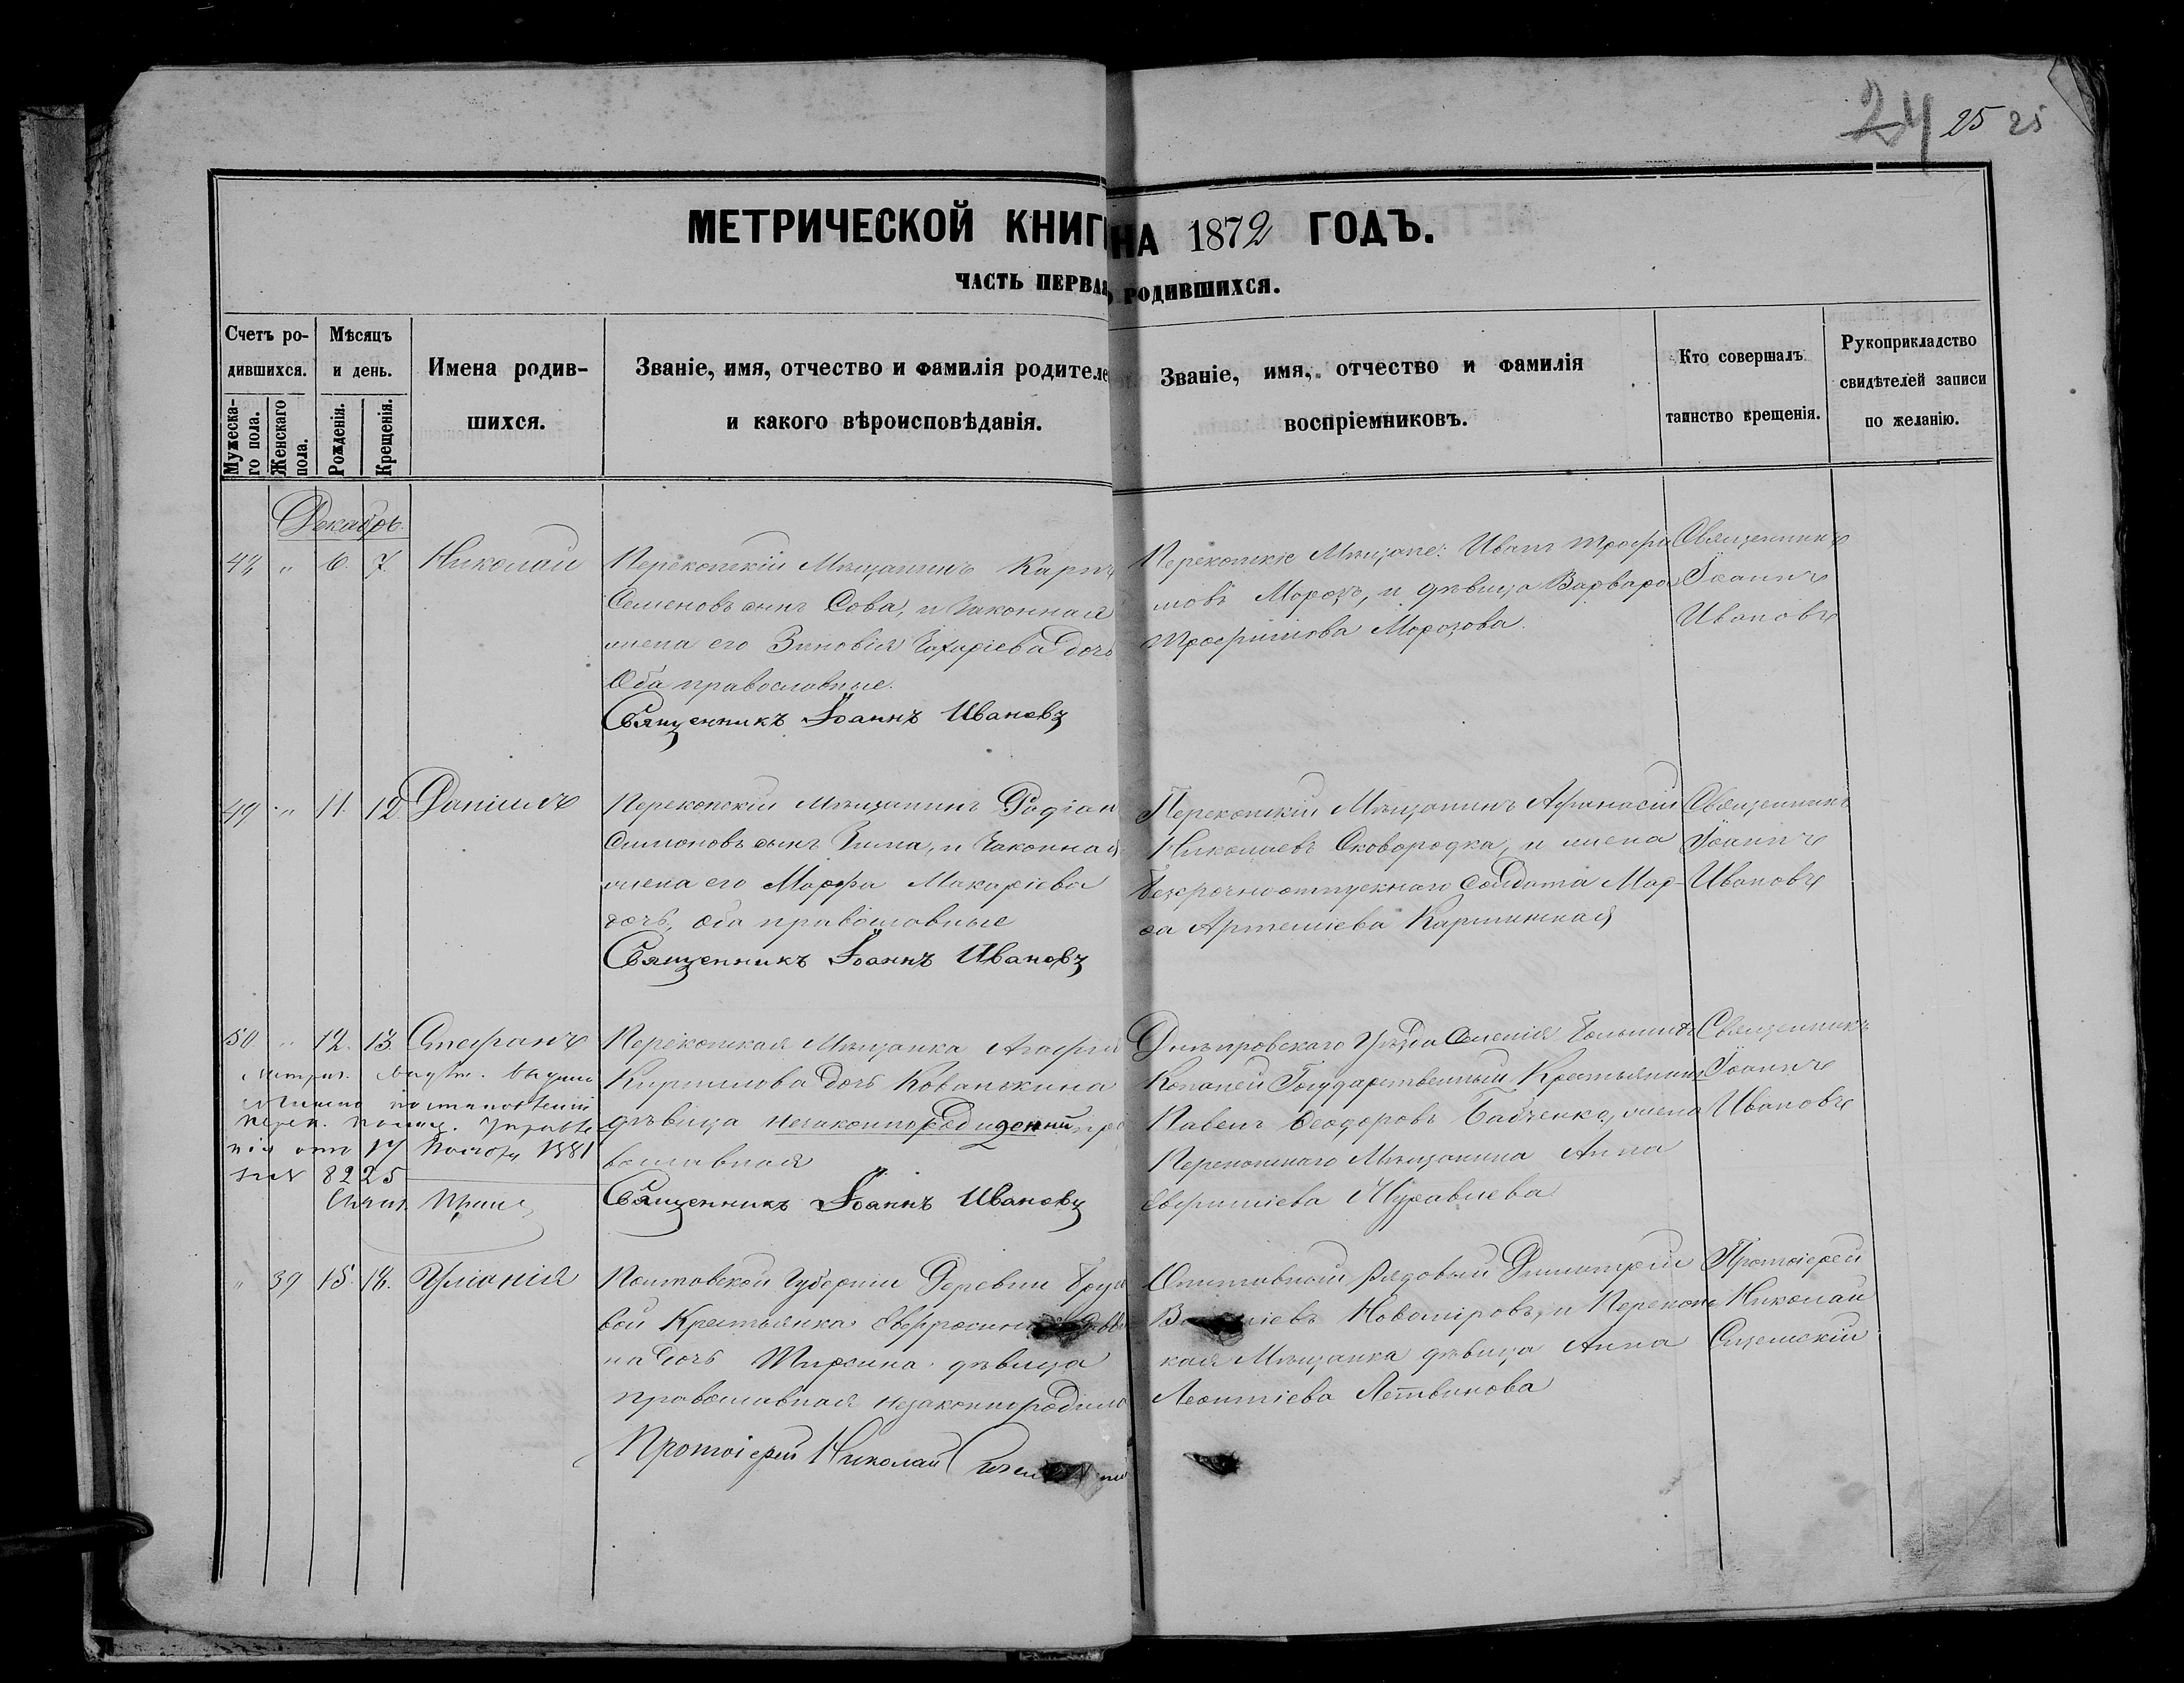 24 25 25
МЕТРИЧЕСКОЙ КНИГ НА 1872 ГОДЪ.
ЧАСТЬ ПЕРВАЯ РОДИВШИХСЯ.
Счетъ ро-
дившихся.
Мужеска-
го пола.
Женскаго
пола.
Мѣсяцъ
и день.
Рожденія.
Крещенія.
Имена родив-
шихся.
Званіе, имя, отчество и фамилія родителе
и какого вѣроисповѣданія.
Званіе, имя, отчество и фамилія
воспріемниковъ.
Кто совершалъ
таинство крещенія.
Рукоприкладство
свидѣтелей записи
по желанію.
Декабрь.
6. 7. Николай
Перекопскій Мѣщанинъ Карпъ
Семеновъ сынъ Сова, и законная
жена его Зиновія Захаріева дочь
Оба православные.
Священникъ Іоаннъ Ивановъ
Перекопскіе Мѣщане: Иванъ Трофи
мовъ Морозъ, и дѣвица Варвара
Трофимова Морозова.
Священникъ
Іоаннъ
Ивановъ
49 " 11. 12. Даніилъ
Перекопскій Мѣщанинъ Родіон
Симоновъ сынъ Зима, и Законная
жена его Марфа Макаріева
дочь, оба православные
Священникъ Іоаннъ Ивановъ
Перекопскій Мѣщанинъ Афанасій
Николаевъ Сковородка, и жена
безсрочноотпускнаго Солдата Мар-
Артеміева
Священникъ
Іоаннъ
Ивановъ
50. " 12. 13. Стефанъ
Перекопская Мѣщанка Агафія
Кириллова дочь
дѣвица незаконнорожденный пра
вославная
Священникъ Іоаннъ Ивановъ
Днѣпровскаго Уѣзда Селенія Большихъ
Копаней Государственный Крестьянинъ
Павелъ Ѳеодоровъ Бабченко, жена
Перекопскаго Мѣщанина Анна
Евфиміева Муравлева
Священникъ
Іоаннъ
Ивановъ
17 1881
за № 8225
" 39 15. 18. Уліанія
Полтавской Губерніи Деревни
вой Крестьянка Евфросинія
на дочь дѣвица
православная незаконнорожден
Протоіерей Николай
Рядовый Димитрій
Новоміровъ, и Перекопс
кая Мѣщанка дѣвица Анна
Леонтіева Летвинова
Протоіерей
Николай